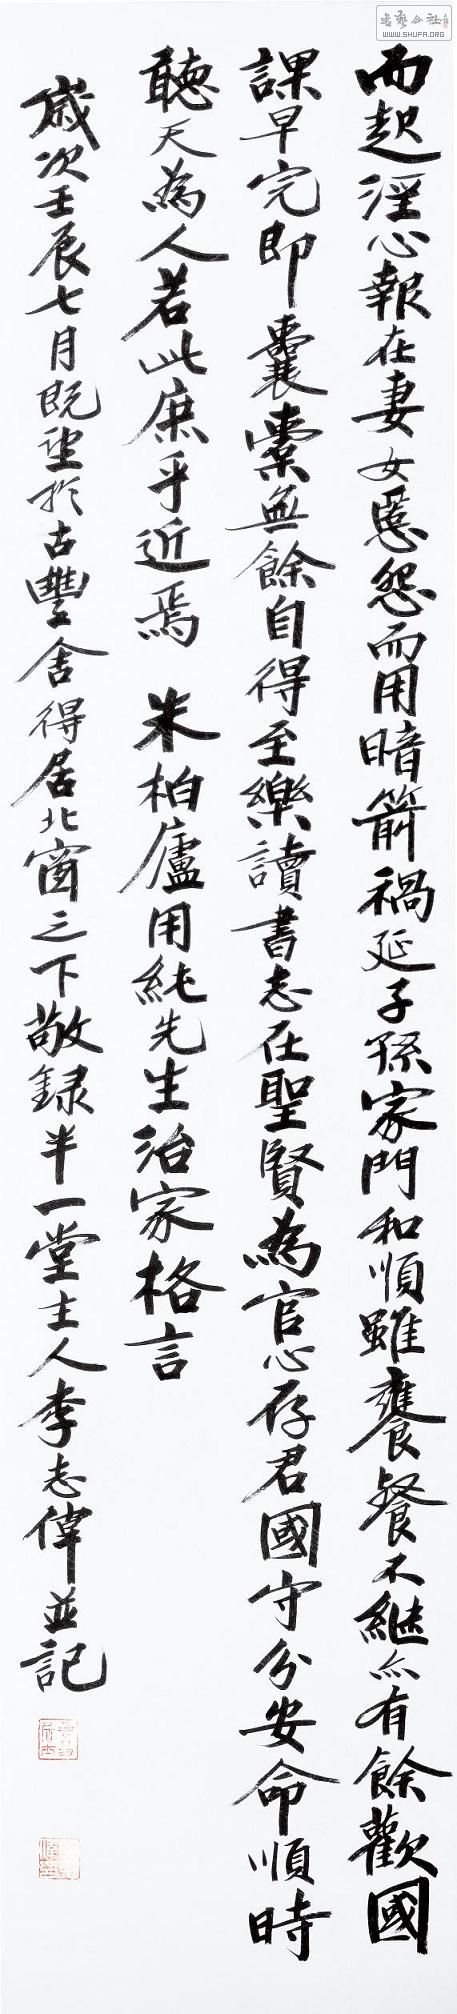 而起淫心報在妻女匿怨而用暗箭禍延子孫家門和順雖饔餐不繼亦有餘歡國
課早完即囊橐無餘自得至樂讀書志在聖賢為官心存君國守分安命順時
聽天為人若此庶乎近焉 朱柏廬用純先生治家格言
歲次壬辰七月既望於古豐舍得居北窗之下敬録半一堂主人李志偉並記
書藝公社
WWW.SHUFA.ORG